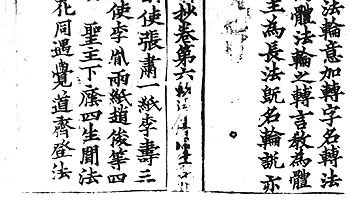 法輪意加轉字名轉法
體法輪之轉言教為體
主為長法旣名輪說亦
抄卷第六
使張肅一紙李壽三
使李胤兩紙趙俊等四
聖主下廕四生聞法
花同遇覺道齊登法